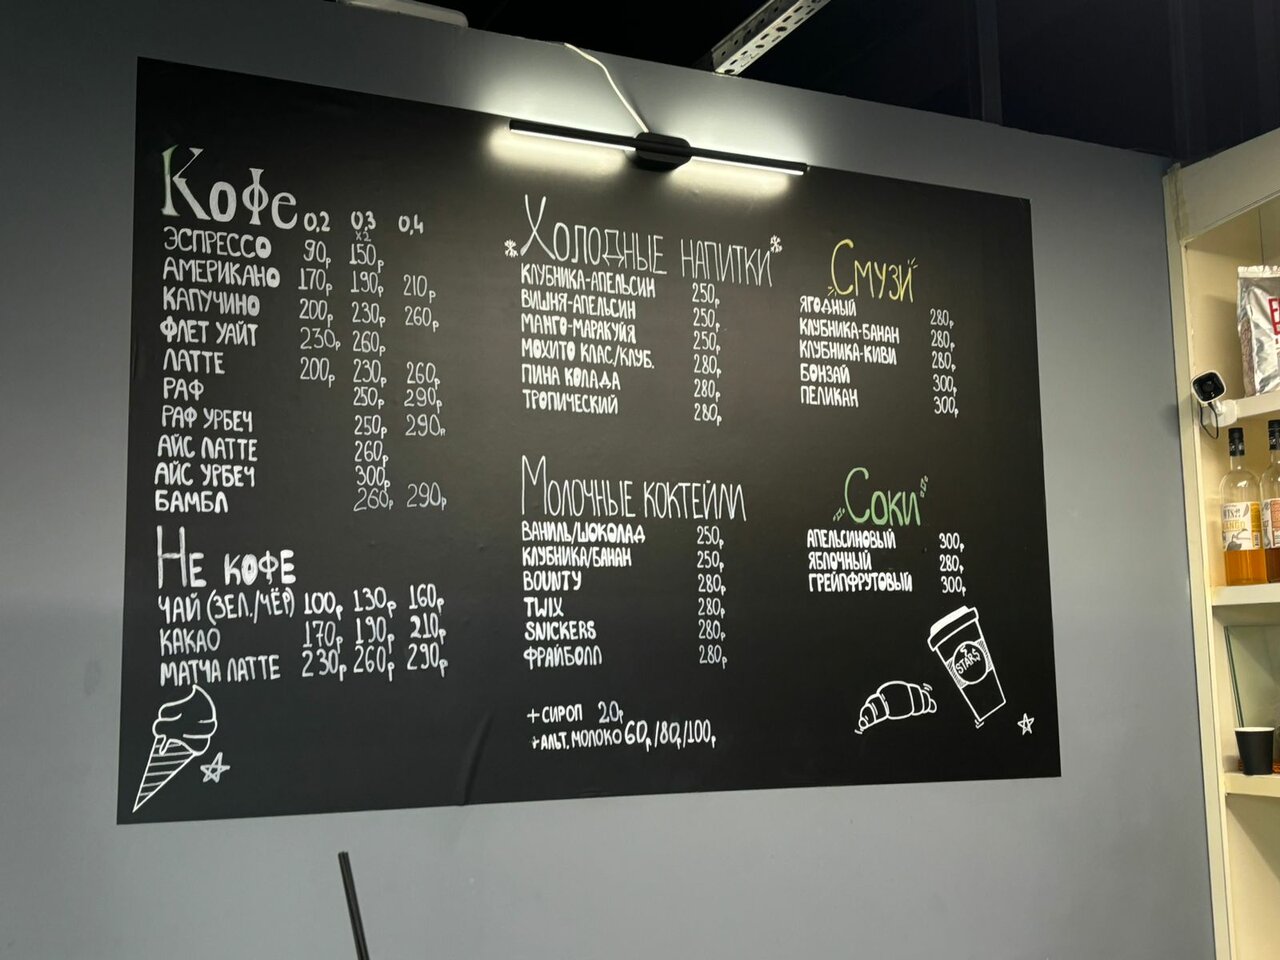 Кофе 0,2 0,3 0,4
ЭСПРЕССО 90р х2 150р
АМЕРИКАНО 170р 190р 210р
КАПУЧИНО 200р 230р 260р
ФЛЕТ УАЙТ 230р 260р
ЛАТТЕ 200р 230р 260р
РАФ 250р 290р
РАФ УРБЕЧ 250р 290р
АЙС ЛАТТЕ 260р
АЙС УРБЕЧ 300р
БАМБЛ 260р 290р
НЕ КОФЕ
ЧАЙ (ЗЕЛ./ЧЁР) 100р 130р 160р
КАКАО 170р 190р 210р
МАТЧА ЛАТТЕ 230р 260р 290р
ХОЛОДНЫЕ НАПИТКИ
КЛУБНИКА-АПЕЛЬСИН 250р
ВИШНЯ-АПЕЛЬСИН 250р
МАНГО-МАРАКУЙЯ 250р
МОХИТО КЛАС/КЛУБ. 280р
ПИНА КОЛАДА 280р
ТРОПИЧЕСКИЙ 280р
МОЛОЧНЫЕ КОКТЕЙЛИ
ВАНИЛЬ/ШОКОЛАД 250р
КЛУБНИКА/БАНАН 250р
BOUNTY 280р
TWIX 280р
SNICKERS 280р
ФРАЙБОЛЛ 280р
+ СИРОП 20р
+ АЛЬТ. МОЛОКО 60р/80р/100р
СМУЗИ
ЯГОДНЫЙ 280р
КЛУБНИКА-БАНАН 280р
КЛУБНИКА-КИВИ 280р
БОНЗАЙ 300р
ПЕЛИКАН 300р
СОКИ
АПЕЛЬСИНОВЫЙ 300р
ЯБЛОЧНЫЙ 280р
ГРЕЙПФРУТОВЫЙ 300р
STARS